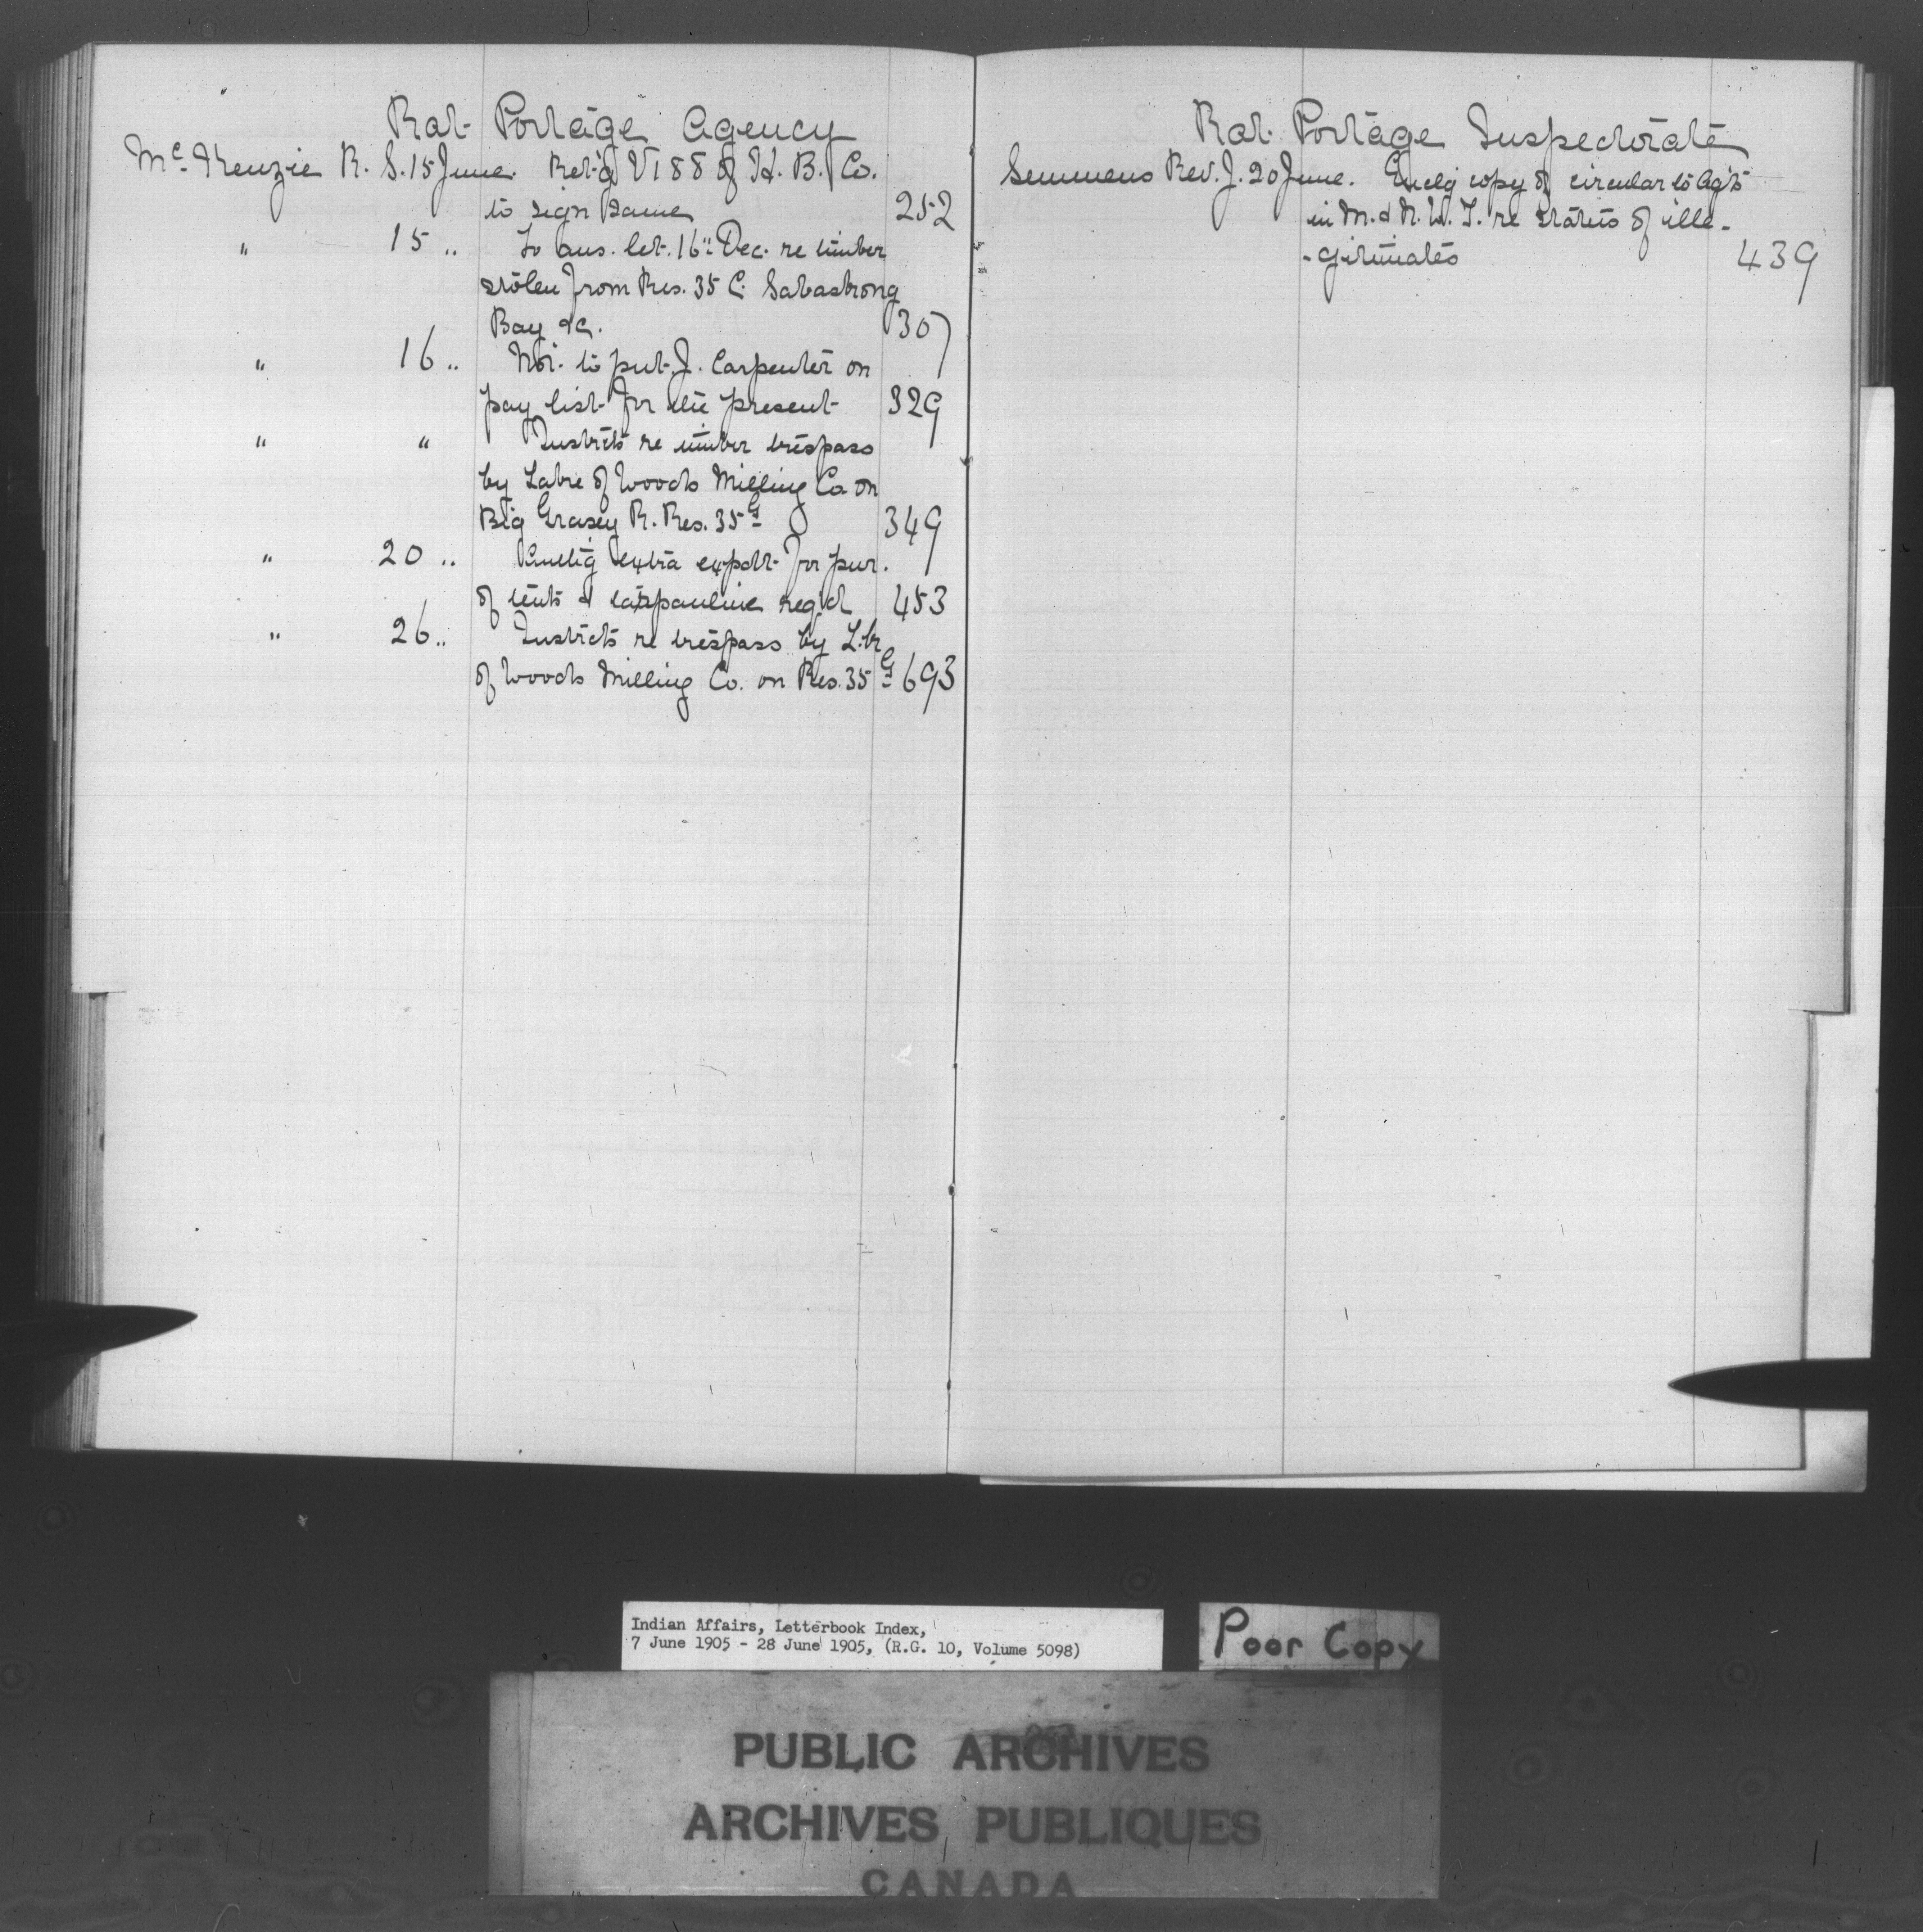 Rat Portage Agency
McKenzie R. S. 15 June. Ret'd V188 of H. B. Co.
to sign same 252
" 15 " To ans. let. 16" Dec. re timber
stolen from Res. 35 C. Sabastrong
Bay &c. 307
" 16 " Not to put J. Carpenter on
pay list for the present 329
" " Instrcts re timber trespass
by Lake of Woods Milling Co on
Big Grassy R. Res. 35G 349
" 20 " extra expdt for pur.
of tents & tarpauline reqd 453
" 26 " Instrcts re trespass by L.
of Woods Milling Co. on Res. 35G 693
Rat Portage Inspectorate
Semmens Rev. J. 20 June. Enclg copy of circular to Agts
in M. & N. W. T. re status of ille-
-gitimates 439
Indian Affairs, Letterbook Index,
7 June 1905 - 28 June 1905, (R.G. 10, Volume 5098)
Poor Copy
PUBLIC ARCHIVES
ARCHIVES PUBLIQUES
CANADA